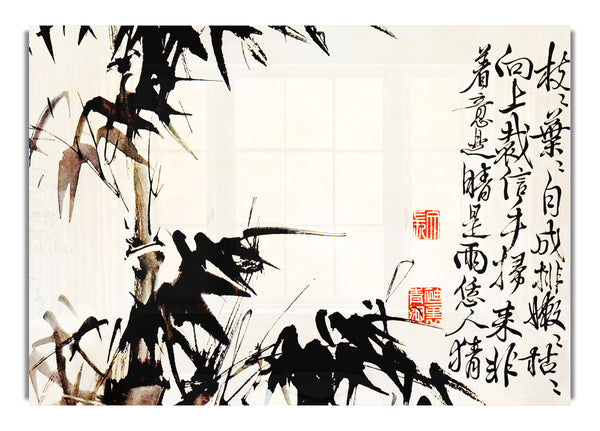 枝〻葉〻自成排嫩〻枯〻
向上裁信手掃來非
着意是晴是雨恁人猜